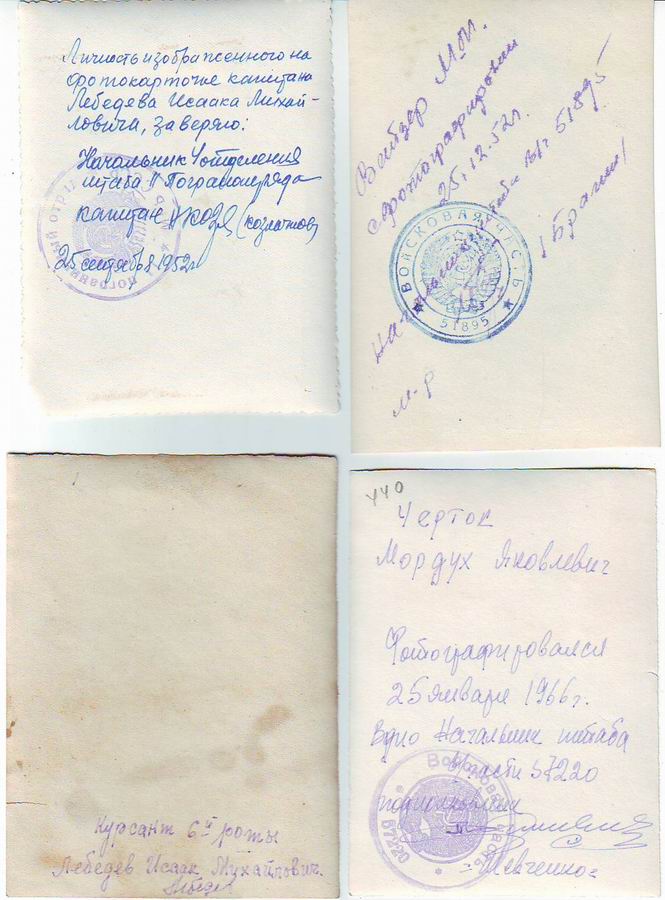 Личность изображенного на
фотокарточке капитана
Лебедева Исаака Михай-
ловича, заверяю:
Начальник 4 отделения
штаба 11 Погранотряда
капитан Козл (Козлитков)
25 сентября 1952 г
Вейзер М.И.
сфотографирован
25.12.52 г.
Начальник штаба в/ч 51895
м-р
/Брагин/
ВОЙСКОВАЯ ЧАСТЬ
51895
Курсант 6й роты
Лебедев Исаак Михайлович.
440
Черток
Мордух Яковлевич
Фотографировался
25 января 1966 г.
Верно Начальник штаба
в/части 57220
подполковник
-Шевченко-
57220